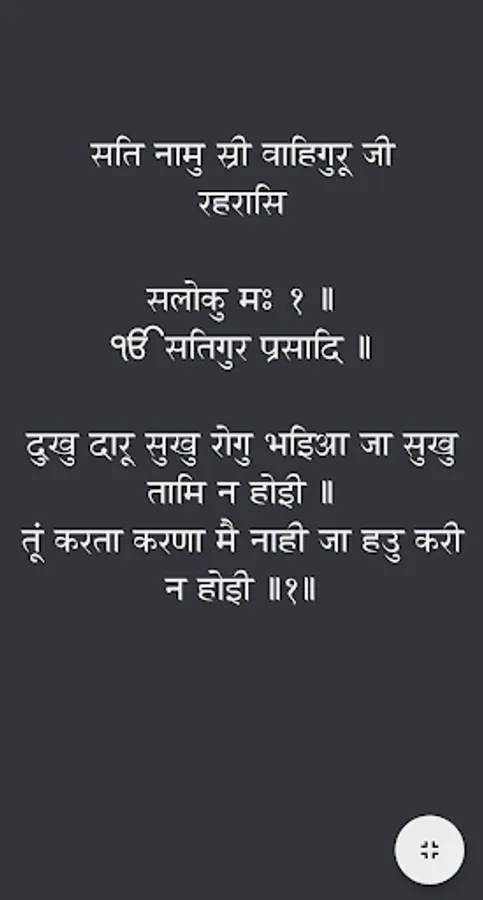 सति नामु स्री वाहिगुरू जी
रहरासि
सलोकु मः १ ॥
ੴ सतिगुर प्रसादि ॥
दुखु दारू सुखु रोगु भइिआ जा सुखु
तामि न होइी ॥
तूं करता करणा मै नाही जा हउ करी
न होइी ॥१॥